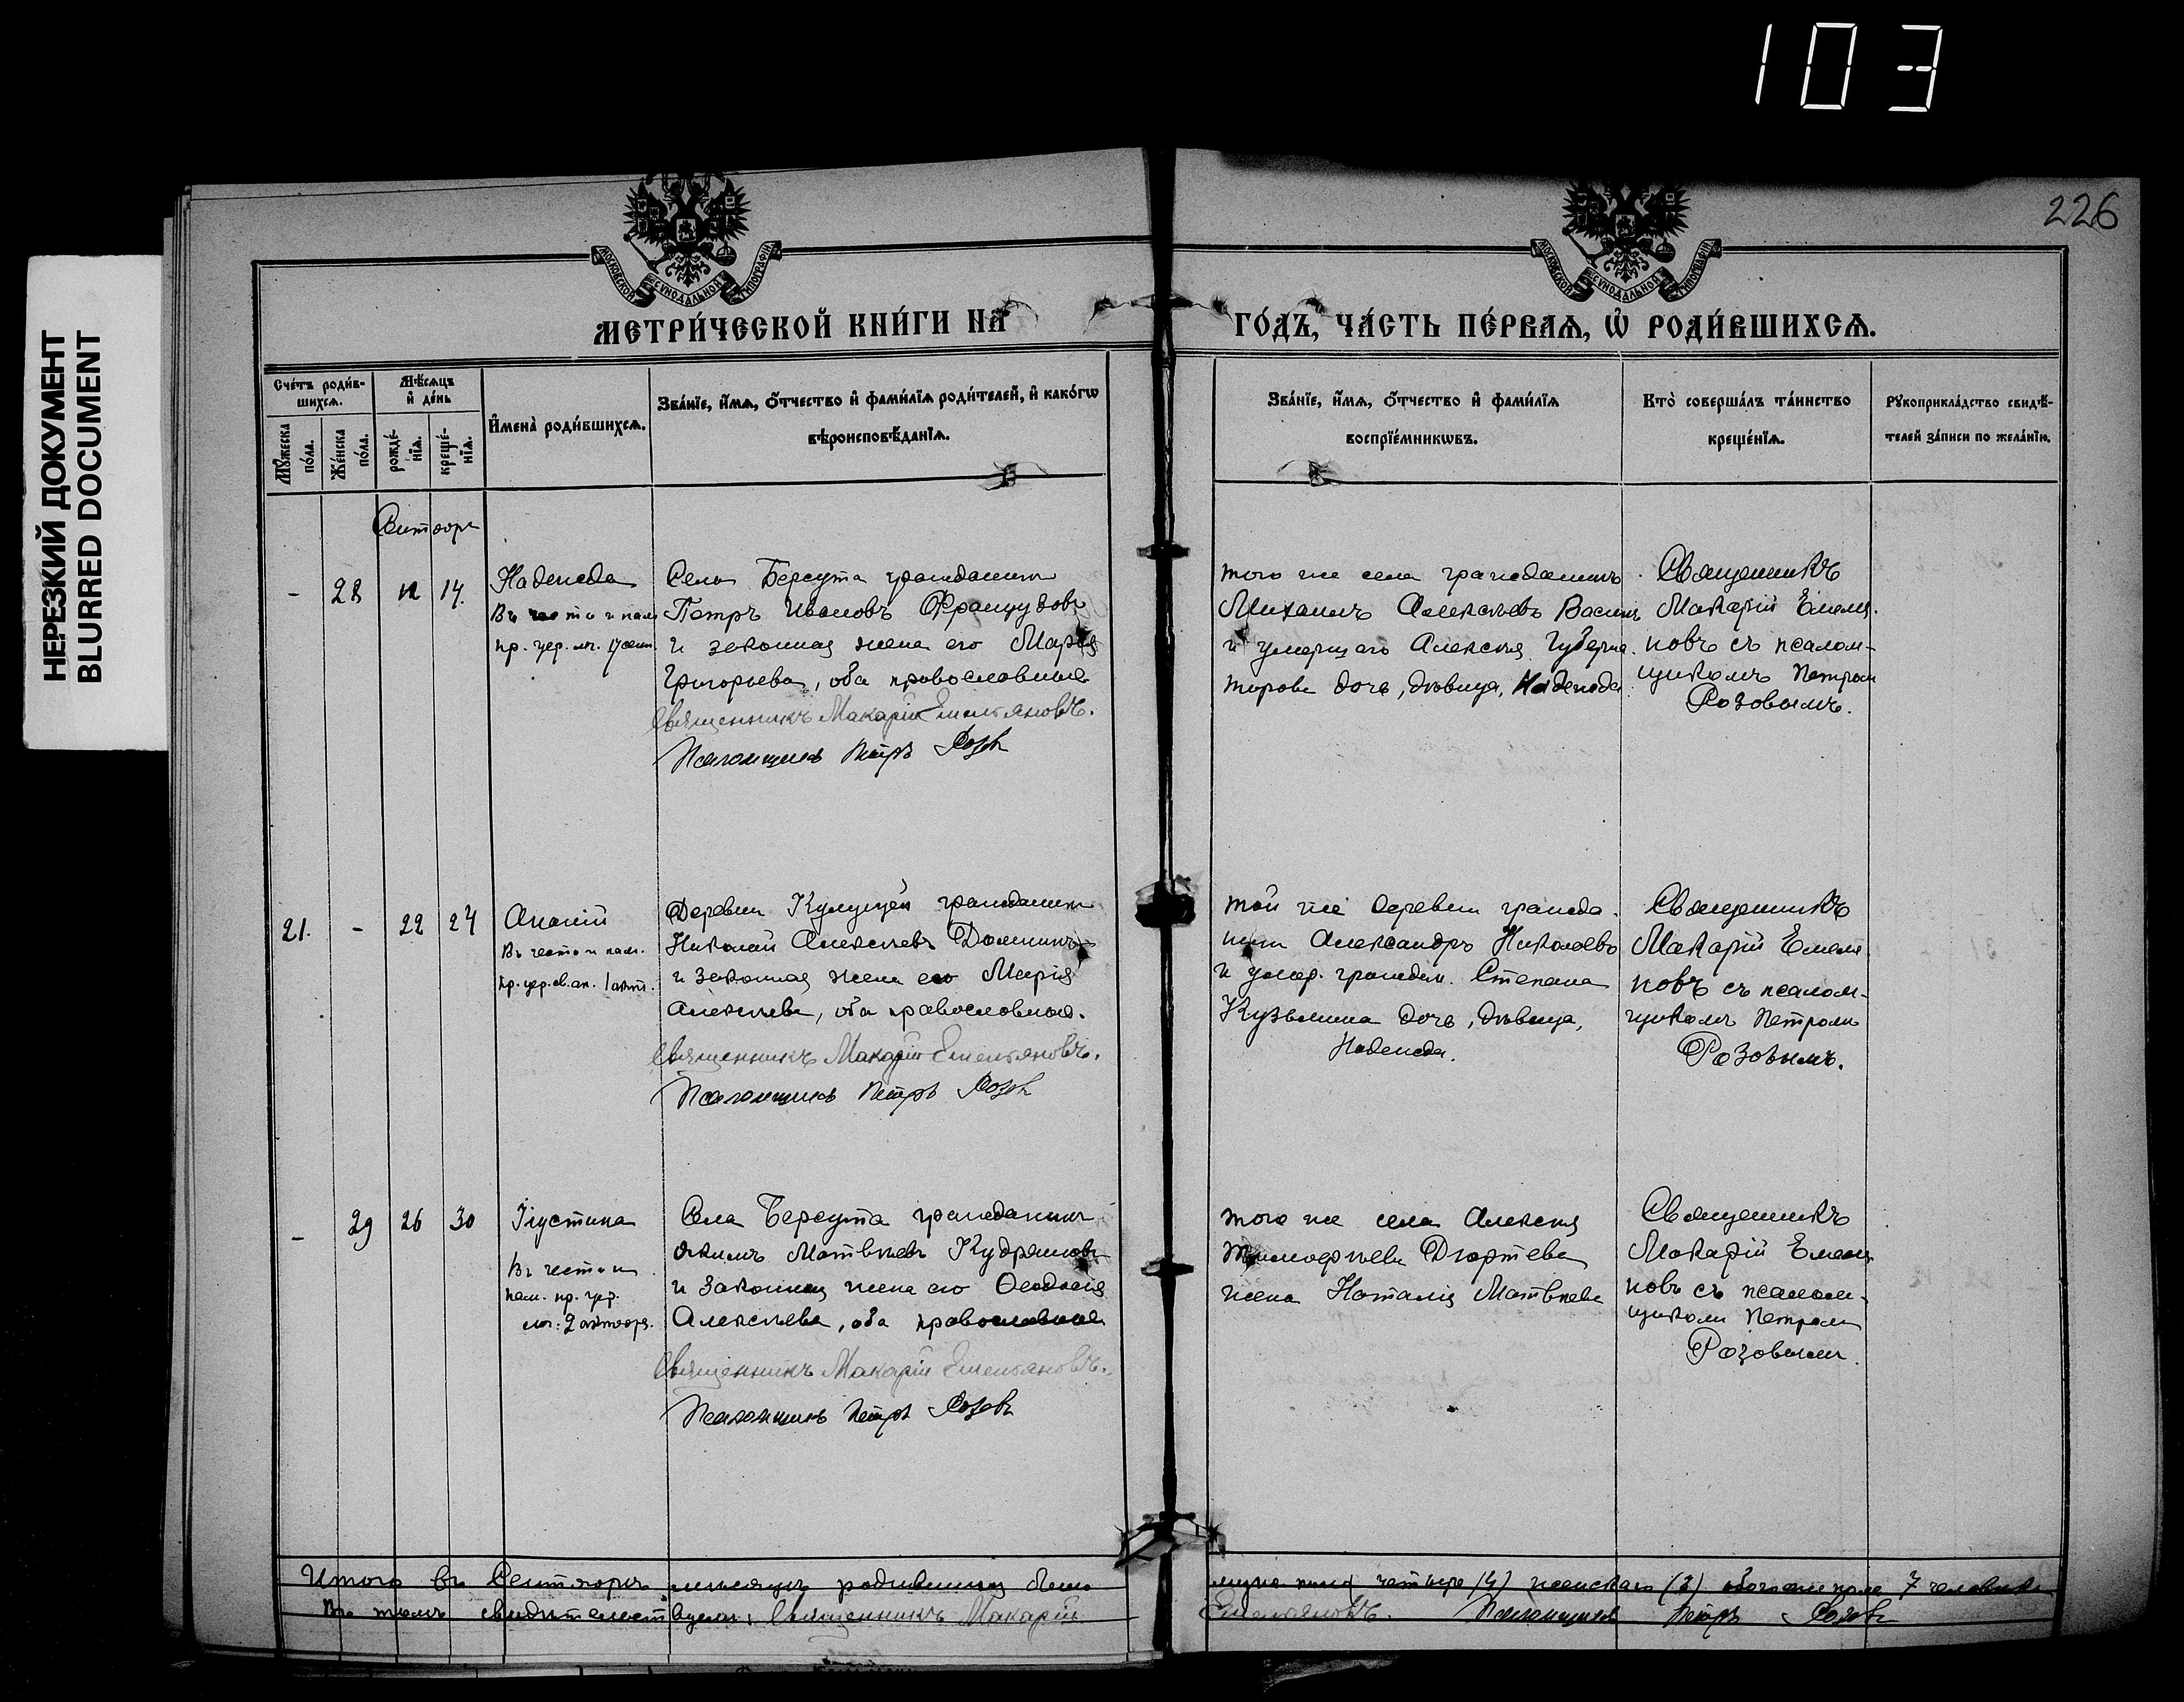 103
НЕРЕЗКИЙ ДОКУМЕНТ
BLURRED DOCUMENT
226
МОСКОВСКОЙ СѴНОДАЛЬНОЙ ТИПОГРАФІИ
МОСКОВСКОЙ СѴНОДАЛЬНОЙ ТИПОГРАФІИ
МЕТРИ́ЧЕСКОЙ КНИ́ГИ НА̀ ГО́ДЪ, ЧА́СТЬ ПЕ́РВАѦ, Ѡ҆ РОДИ́ВШИХСѦ.
Сче́тъ роди́в-
шихсѧ.
Мѣ́сѧцъ
и҆ де́нь
Мꙋ́жеска
по́ла.
Же́нска
по́ла.
рожде́-
нїѧ.
креще́-
нїѧ.
И҆мена̀ роди́вшихсѧ.
Зва́нїе, и҆́мѧ, ѻ҆́тчество и҆ фами́лїѧ роди́телей, и҆ како́гѡ
вѣроисповѣ́данїѧ.
Зва́нїе, и҆́мѧ, ѻ҆́тчество и҆ фами́лїѧ
воспрїе́мникѡвъ.
Кто̀ соверша́лъ та́инство
креще́нїѧ.
Рꙋкоприкла́дство свидѣ́-
телей за́писи по жела́нїю.
- 28 12 14.
Надежда
Село Берсута гражданинъ
Петръ Ивановъ Французовъ
и законная жена его Марія
Григорьева, оба православные
Священникъ Макарій Емельяновъ.
Псаломщикъ Петръ Розовъ
того же села гражданинъ
Михаилъ Алексѣевъ
и умершаго Алексѣя
дочь, дѣвица, Надежда
Священникъ
Макарій Емелья-
новъ съ псалом-
щикомъ Петромъ
Розовымъ.
21. - 22 24
Ананій
Въ честь и пам.
Деревни гражданинъ
Николай Алексѣевъ
и законная жена его Марія
Алексѣева, оба православные.
Священникъ Макарій Емельяновъ.
Псаломщикъ Петръ Розовъ
той же деревни гражда-
нинъ Александръ Николаевъ
и умер. граждан. Степана
Кузьмина дочь, дѣвица,
Надежда.
Священникъ
Макарій Емелья-
новъ съ псалом-
щикомъ Петромъ
Розовымъ.
- 29 26 30
Іустина
Въ честь и
пам. пр. цер.
2 октября.
Села Берсута гражданинъ
Якимъ Матвѣевъ Кудряшовъ
и законная жена его Ѳеодосія
Алексѣева, оба православные
Священникъ Макарій Емельяновъ.
Псаломщикъ Петръ Розовъ
того же села Алексѣя
Тимофѣева
жена Наталія Матвѣева
Священникъ
Макарій Емелья-
новъ съ псалом-
щикомъ Петромъ
Розовымъ.
Итого въ Сентябрѣ мѣсяцѣ родившихся было муж. пола четыре (4) женскаго (3) обоего пола 7 человѣкъ
Въ томъ свидѣтельствуемъ: Священникъ Макарій Емельяновъ. Псаломщикъ Петръ Розовъ